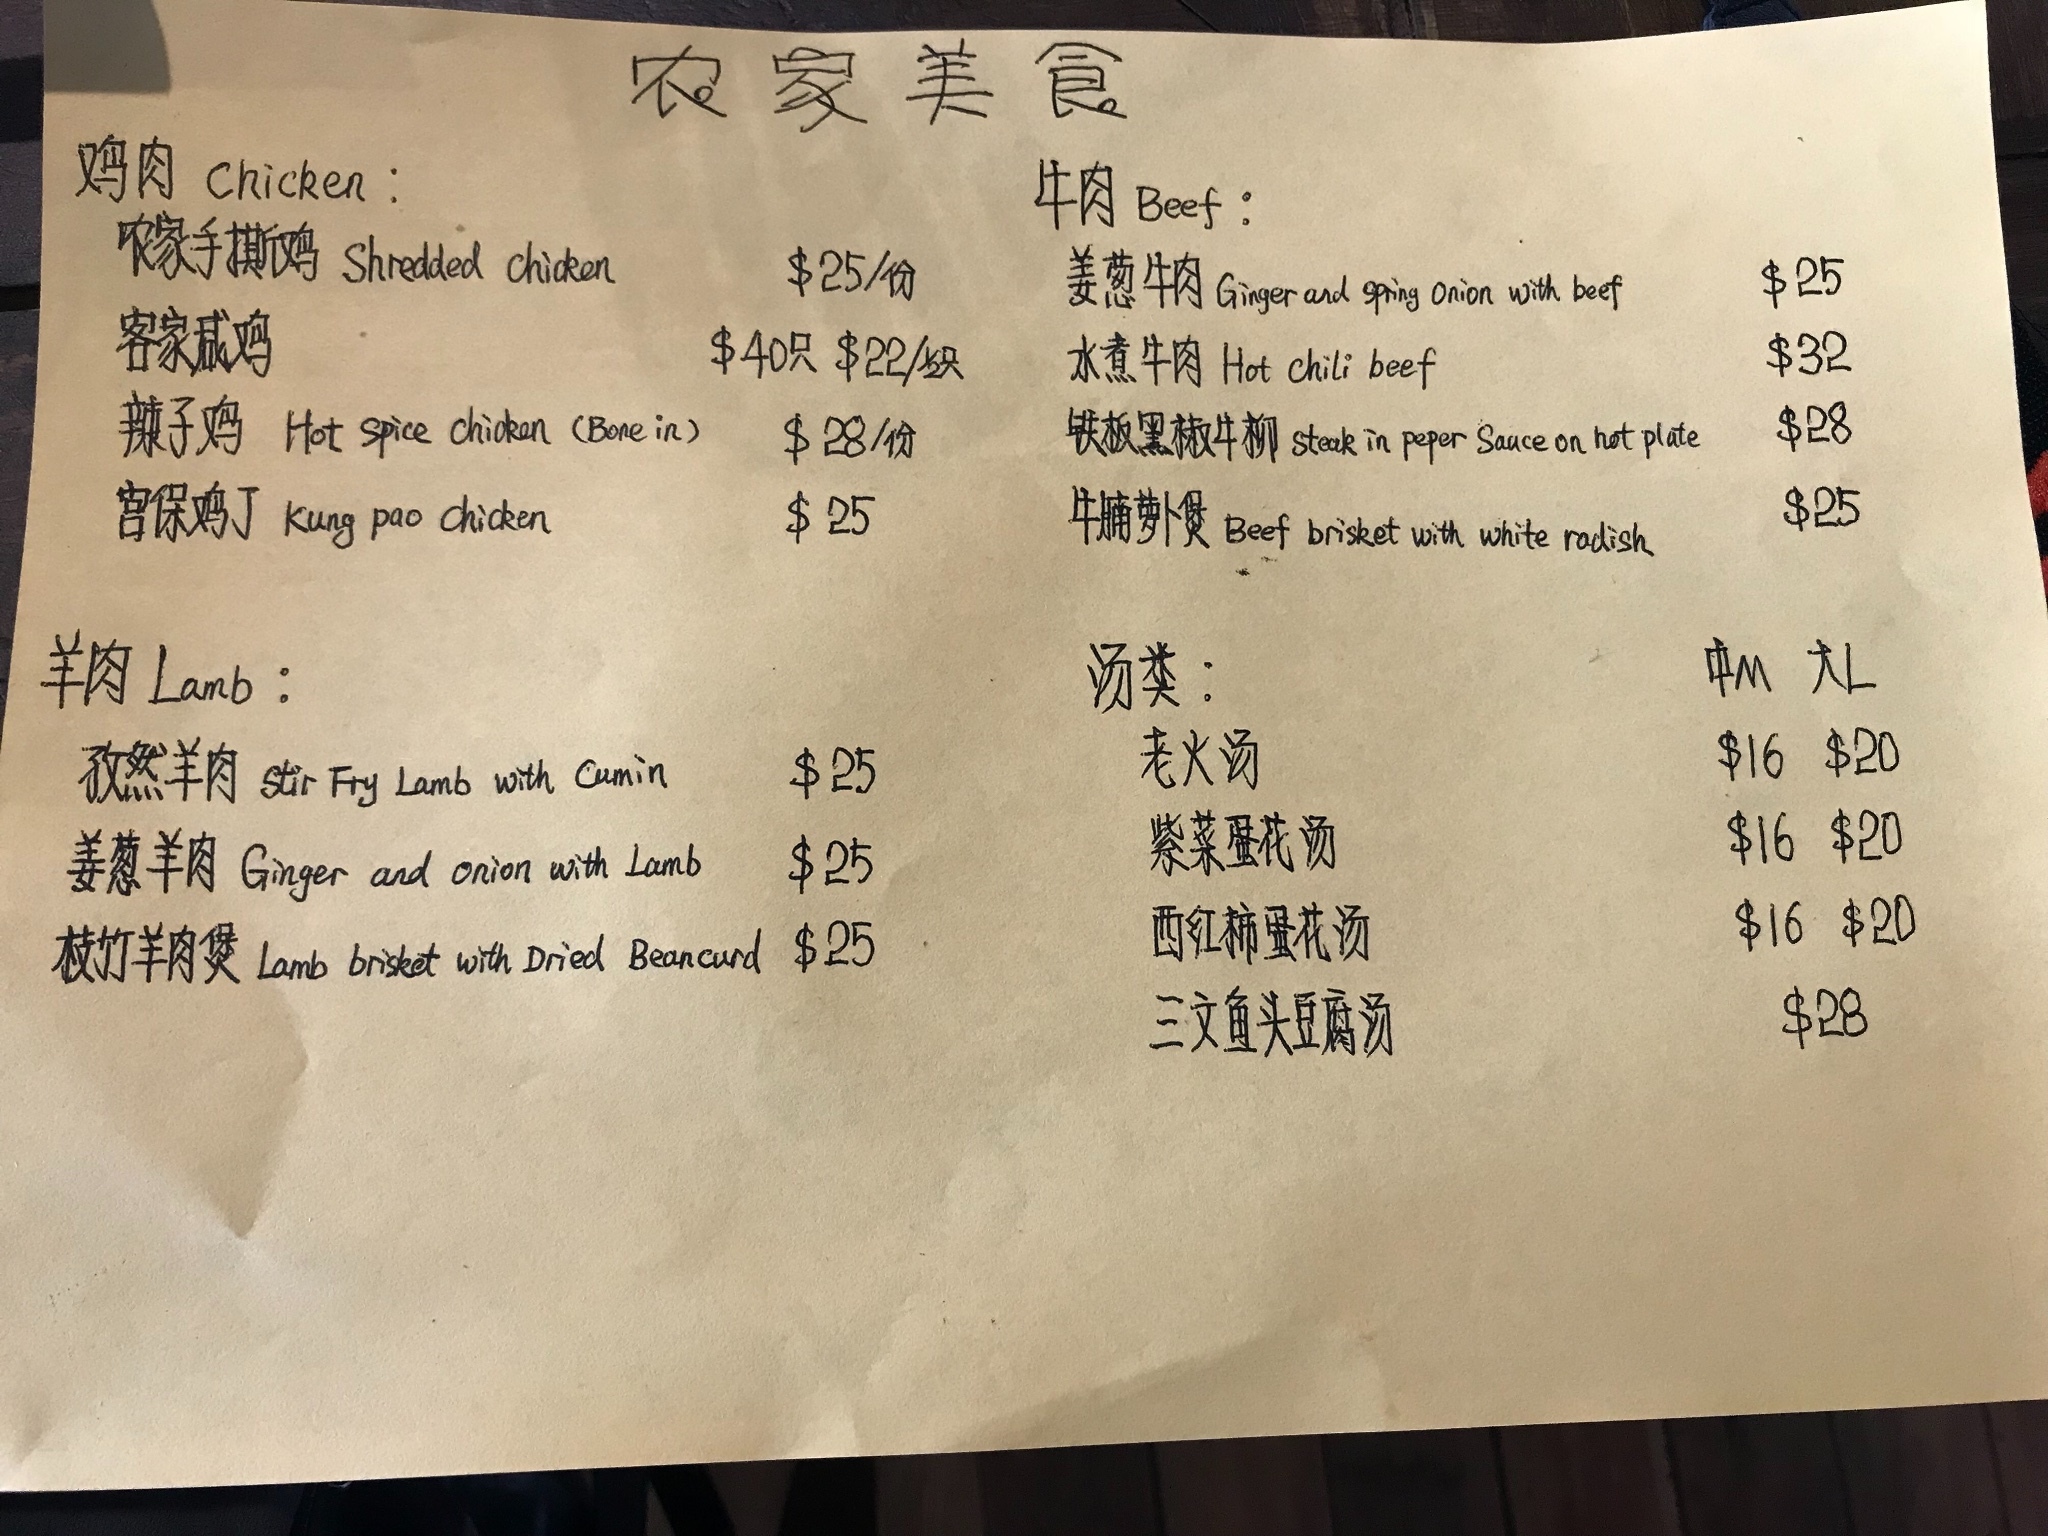 农家美食
鸡肉 Chicken:
农家手撕鸡 Shredded chicken $25/份
客家咸鸡 $40只 $22/半只
辣子鸡 Hot Spice chicken (Bone in) $28/份
宫保鸡丁 Kung pao chicken $25
羊肉 Lamb:
孜然羊肉 Stir Fry Lamb with Cumin $25
姜葱羊肉 Ginger and onion with Lamb $25
枝竹羊肉煲 Lamb brisket with Dried Beancurd $25
牛肉 Beef:
姜葱牛肉 Ginger and spring onion with beef $25
水煮牛肉 Hot chili beef $32
铁板黑椒牛柳 Steak in peper Sauce on hot plate $28
牛腩萝卜煲 Beef brisket with white radish $25
汤类: 中M 大L
老火汤 $16 $20
紫菜蛋花汤 $16 $20
西红柿蛋花汤 $16 $20
三文鱼头豆腐汤 $28